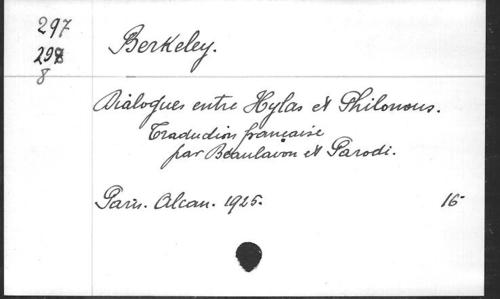 297
298
8
Berkeley.
Dialogues entre Hylas et Philonous.
Traduction française
par Beaulavon et Parodi.
Paris. Alcan. 1925. 16